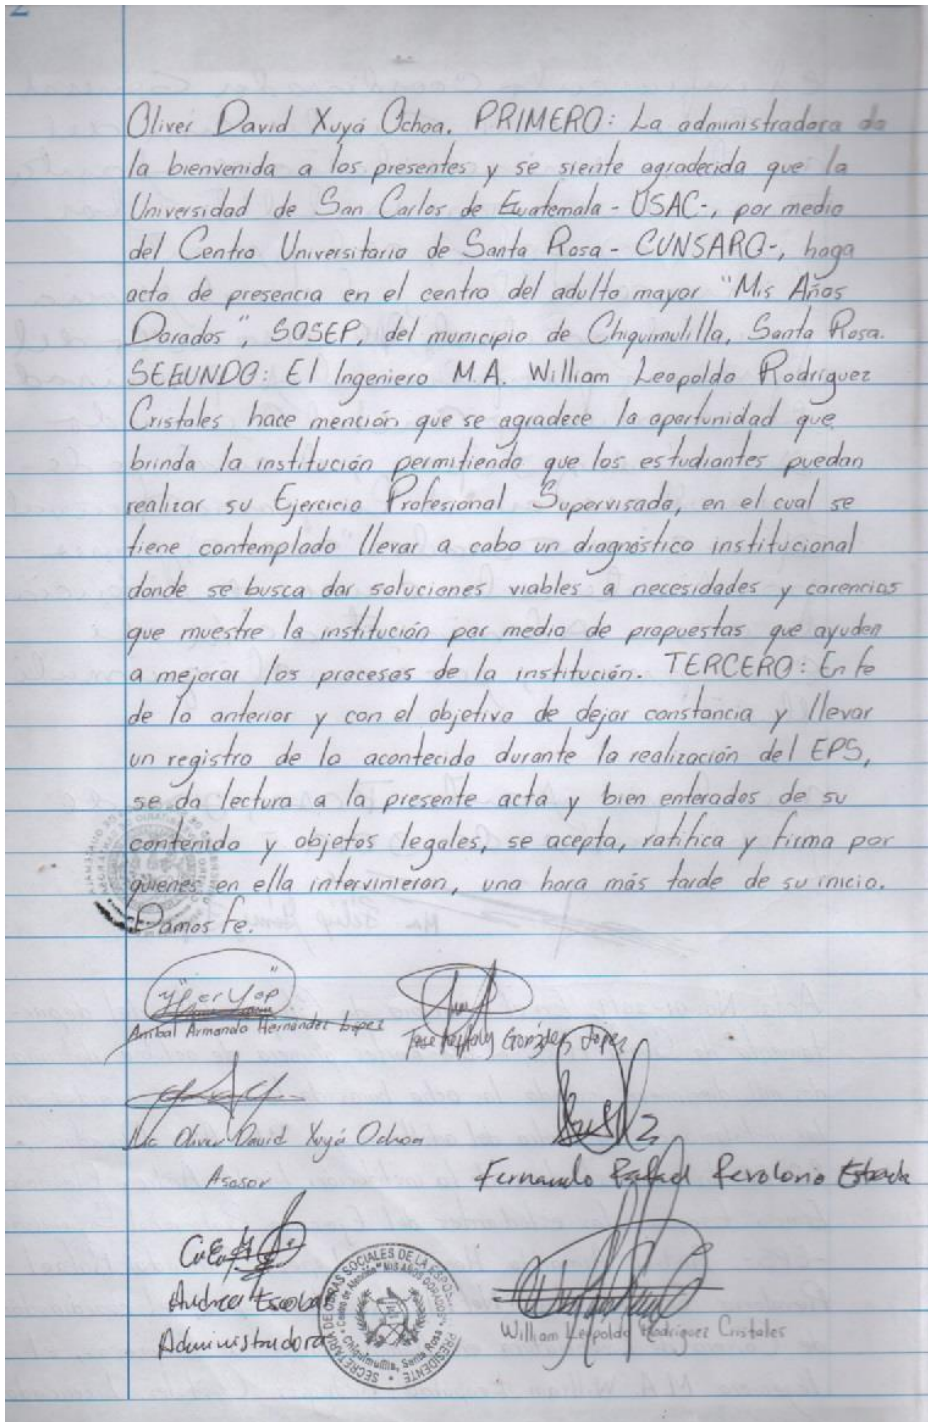 2
Oliver David Xuyá Ochoa. PRIMERO: La administradora da
la bienvenida a los presentes y se siente agradecida que la
Universidad de San Carlos de Guatemala - USAC-, por medio
del Centro Universitario de Santa Rosa - CUNSARO-, haga
acto de presencia en el centro del adulto mayor "Mis Años
Dorados", SOSEP, del municipio de Chiquimulilla, Santa Rosa.
SEGUNDO: El Ingeniero M.A. William Leopoldo Rodríguez
Cristales hace mención que se agradece la oportunidad que
brinda la institución permitiendo que los estudiantes puedan
realizar su Ejercicio Profesional Supervisado, en el cual se
tiene contemplado llevar a cabo un diagnóstico institucional
donde se busca dar soluciones viables a necesidades y carencias
que muestre la institución por medio de propuestas que ayuden
a mejorar los procesos de la institución. TERCERO: En fe
de lo anterior y con el objetivo de dejar constancia y llevar
un registro de lo acontecido durante la realización del EPS,
se da lectura a la presente acta y bien enterados de su
contenido y objetos legales, se acepta, ratifica y firma por
quienes en ella intervinieron, una hora más tarde de su inicio.
Damos fe.
Anibal Armando Hernández López
José González López
Lic Oliver David Xuyá Ochoa
Asesor
Fernando Rafael Revolorio Estrada
Andrea Escobar
Administradora
SECRETARÍA DE OBRAS SOCIALES DE LA ESPOSA PRESIDENTE
Centro de Atención "MIS AÑOS DORADOS"
Chiquimulilla, Santa Rosa
William Leopoldo Rodríguez Cristales